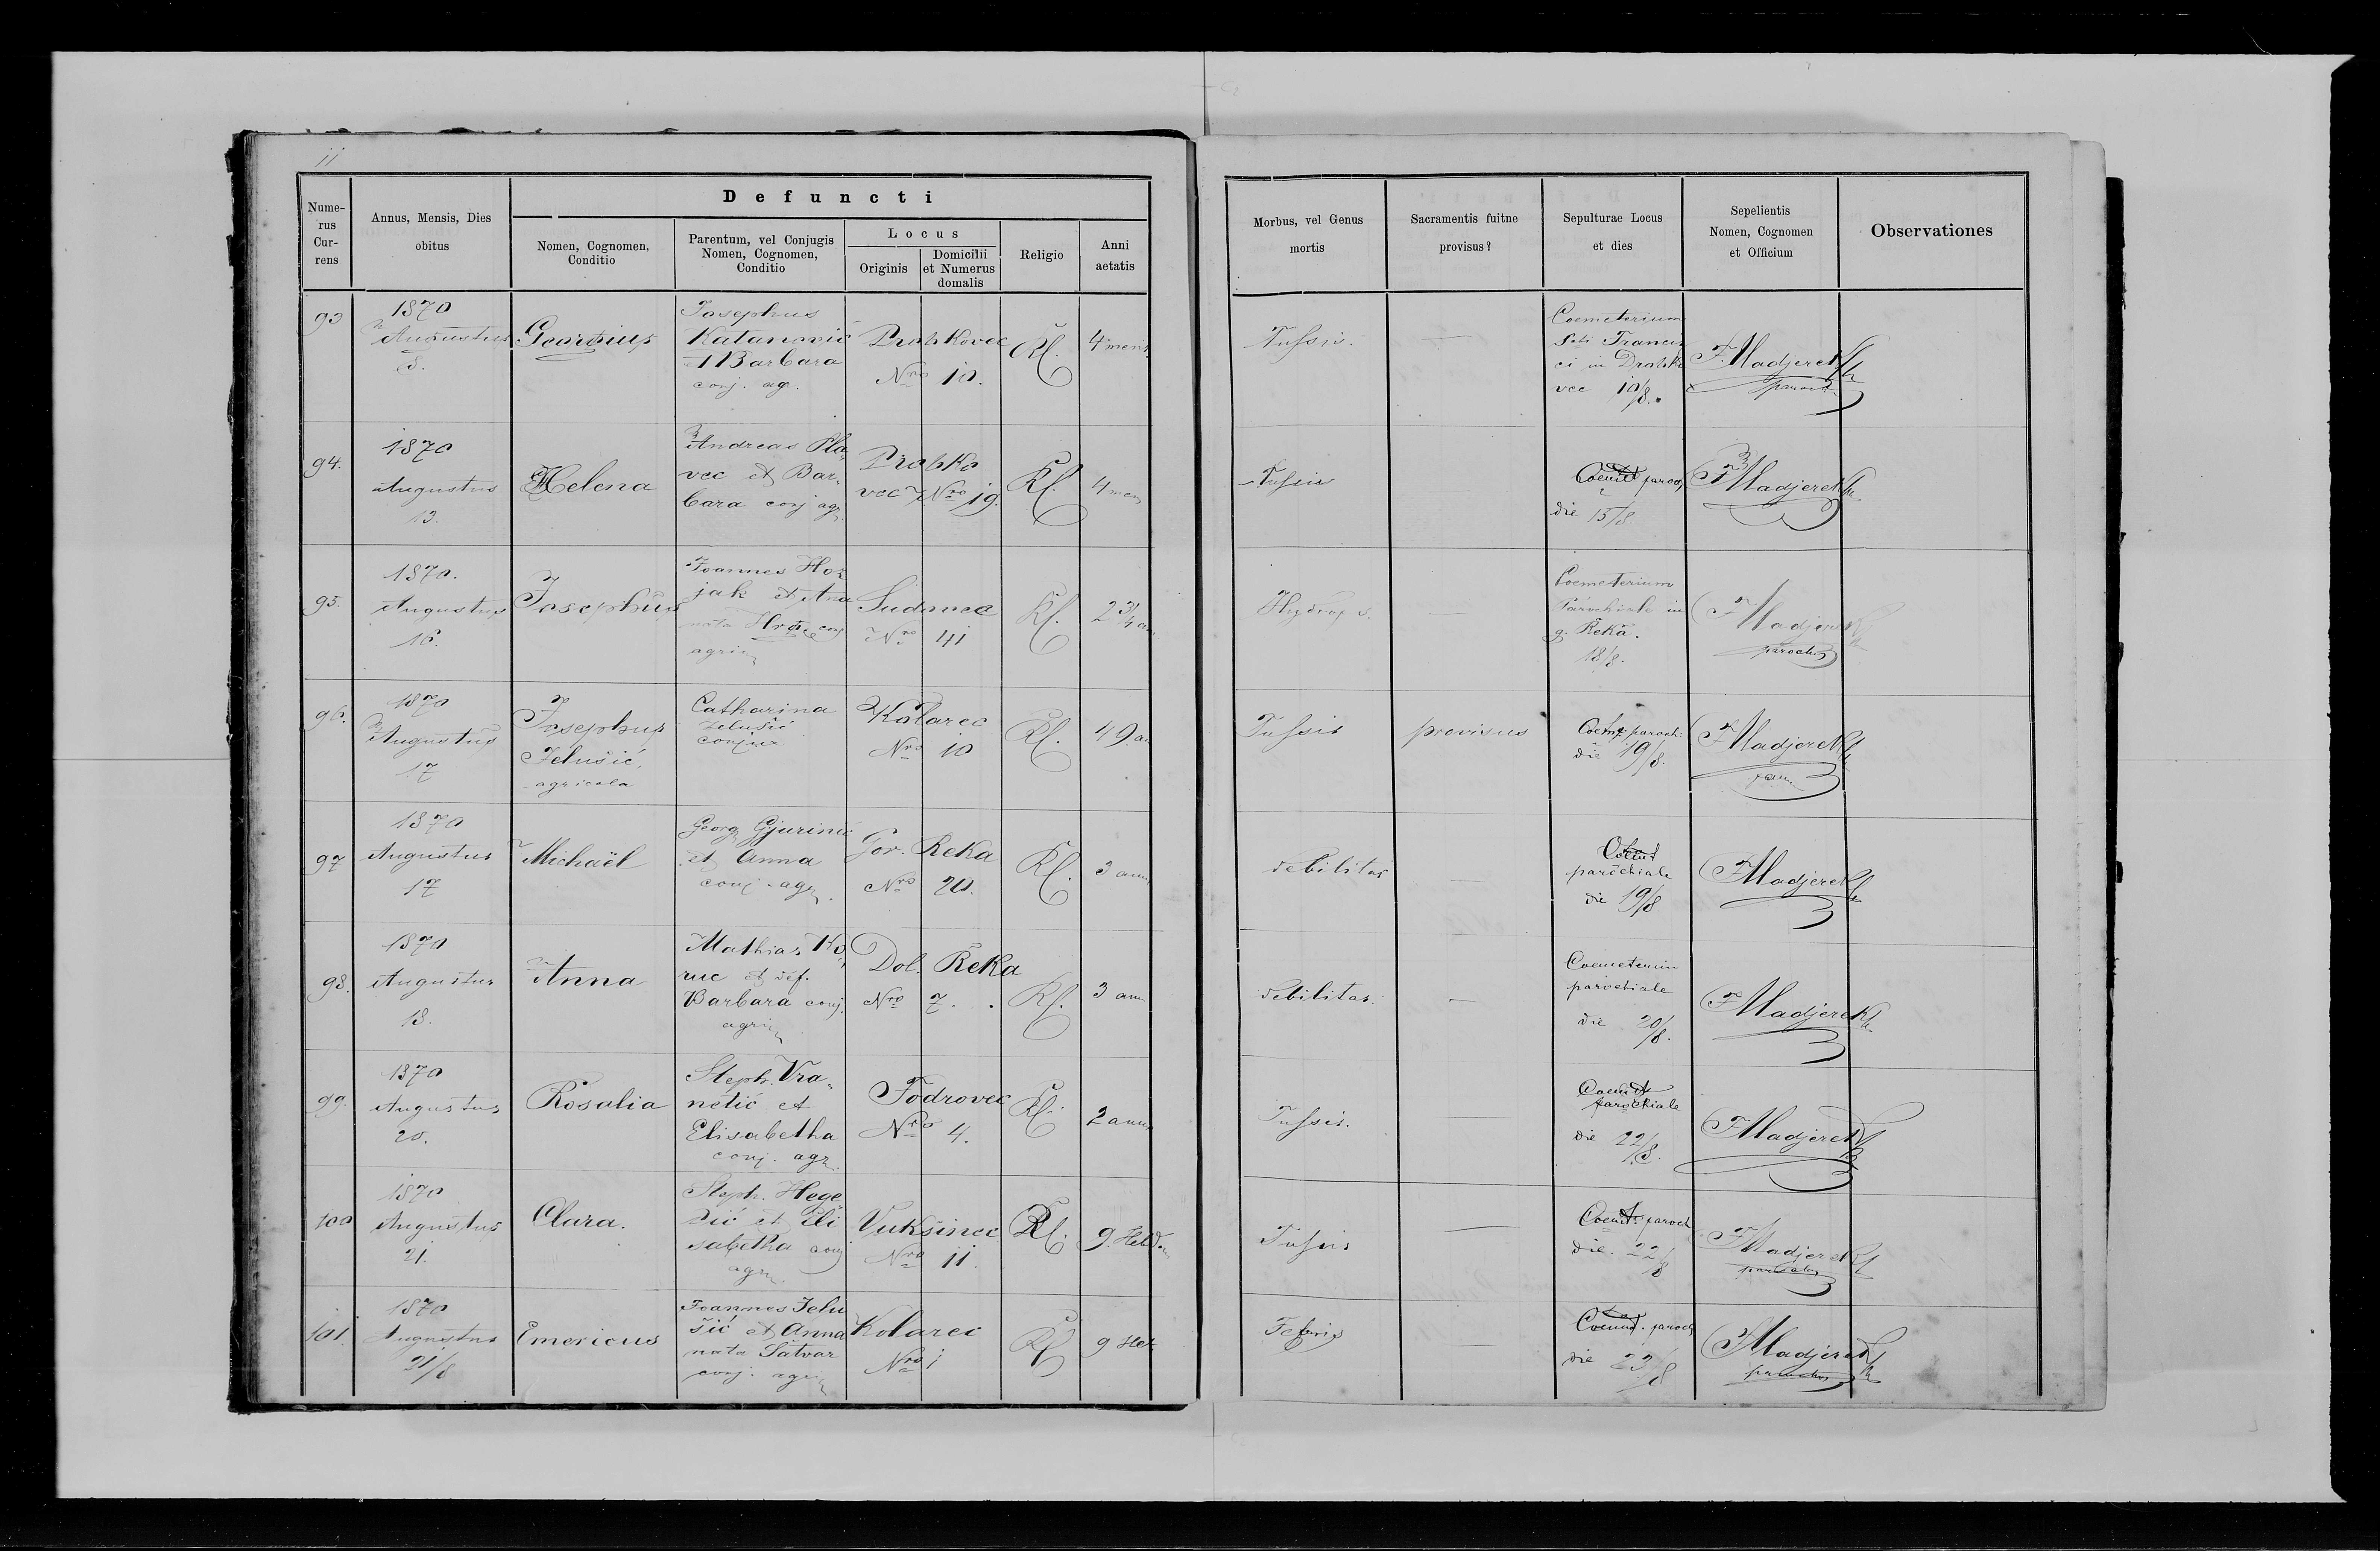 11
Defuncti
Nume-
rus
Cur-
rens
Annus, Mensis, Dies
obitus
Nomen, Cognomen,
Conditio
Parentum, vel Conjugis
Nomen, Cognomen,
Conditio
Locus
Originis
Domicilii
et Numerus
domalis
Religio
Anni
aetatis
Morbus, vel Genus
mortis
Sacramentis fuitne
provisus?
Sepulturae Locus
et dies
Sepelientis
Nomen, Cognomen
et Officium
Observationes
93
1870
Augustus
8.
Georgius
Josephus
Katanović
et Barbara
conj. ag.
Drobkovec
Nro 10.
Rk.
4 mens.
Tussis.
—
Coemeterium
Sti Francis
ci in Drobko
vec 10/8.
F Madjerek
paroch.
94.
1870
Augustus
13.
Helena
Andreas Pla
vec et Bar-
bara conj agr.
Drobko
vec Nro 19.
Rk.
4 men
Tussis
Coemt paroch
die 15/8.
F Madjerek
95.
1870.
Augustus
16.
Josephus
Joannes
jak et Ana
nata conj
agric
Sudovec
Nro 41
Rk.
2 3/4 an.
Hydrops.
—
Coemeterium
Parochiale in
g. Reka.
18/8.
F Madjerek
paroch.
96.
1870
Augustus
17
Josephus
Jelušić,
agricola
Catharina
Jelušić
conjux
Kolarec
Nro 10
Rk.
49. an
Tussis
provisus
Coemt. paroch.
die 19/8.
F Madjerek
97
1870
Augustus
17
Michaël
Georg Gjurinić
et Anna
conj. agr.
Gor. Reka
Nro 20.
Rk.
3 ann
debilitas
—
Coemt
parochiale
die 19/8
F Madjerek
98.
1870
Augustus
18.
Anna
Mathias Ko
ruc et def.
Barbara conj.
agric
Dol. Reka
Nro 7.
Rk.
3 ann
debilitas.
—
Coemeterium
parochiale
die 20/8.
F Madjerek
99.
1870
Augustus
20.
Rosalia
Steph. Vra-
netić et
Elisabetha
conj. agr.
Fodrovec
Nro 4.
Rk.
2 ann
Tussis.
—
Coemt
parochiale
die 22/8.
F Madjerek
100
1870
Augustus
21.
Clara.
Steph. Hege
dić et Eli
sabetha conj
agr.
Vukšinec
Nro 11.
Rk.
9. Hebdom
Tussis
—
Coemt. paroch
die. 22/8
F Madjerek
parochus
101.
1870
Augustus
21/8
Emericus
Joannes Jelu
šić et Anna
nata Šatvar
conj. agr.
Kolarec
Nro 1
Rk
9 Heb
Febris
—
Coemt. paroch
die 23/8
F Madjerek
parochus